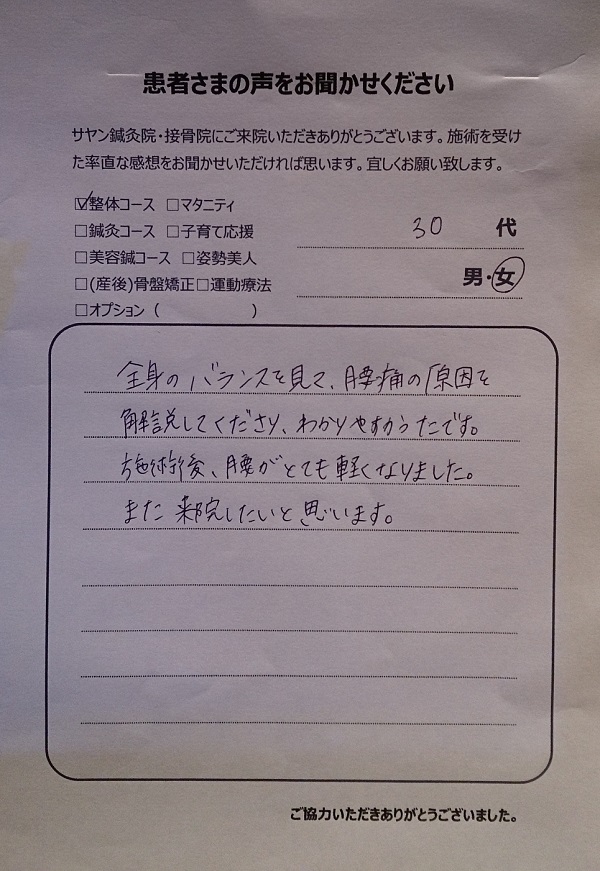 患者さまの声をお聞かせください
サヤン鍼灸院・接骨院にご来院いただきありがとうございます。施術を受け
た率直な感想をお聞かせいただければ思います。宜しくお願い致します。
☑整体コース □マタニティ
□鍼灸コース □子育て応援
30 代
□美容鍼コース □姿勢美人
□(産後)骨盤矯正□運動療法
男・女
□オプション ( )
全身のバランスを見て、腰痛の原因を
解説してくださり、わかりやすかったです。
施術後、腰がとても軽くなりました。
また来院したいと思います。
ご協力いただきありがとうございました。